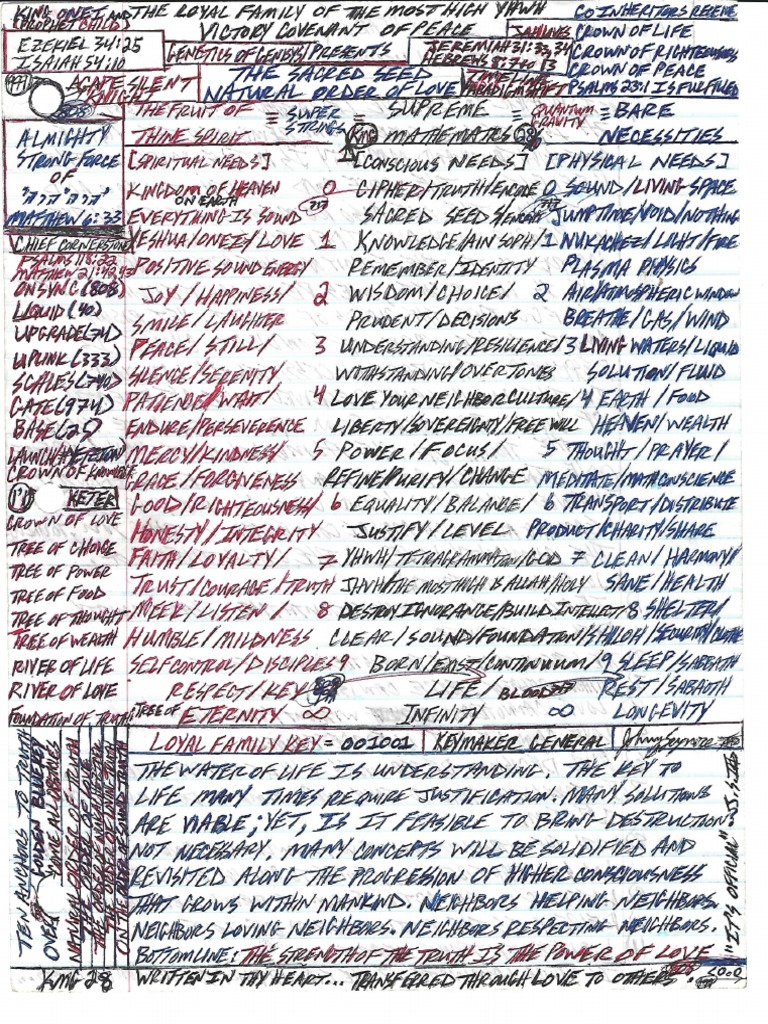 KING ONEI, AND THE ROYAL FAMILY OF THE MOST HIGH YHWH CO INHERITORS RECEIVE
(PROPHET CHILD) VICTORY COVENANT OF PEACE CROWN OF LIFE
EZEKIEL 34:25 JEREMIAH 31:33,34 CROWN OF RIGHTEOUSNESS
ISAIAH 54:10 GENETICS OF GENESYS PRESENTS HEBREWS 8:7 TO 13 CROWN OF PEACE
AGAPE SILENT THE SACRED SEED TIMELINE PSALMS 23:1 IS FULFILLED
KNIGHT NATURAL ORDER OF LOVE PARADIGM SHIFT
808 THE FRUIT OF ≡ SUPER SUPREME ≡ QUANTUM ≡ BARE
THINE SPIRIT STRINGS MATHEMATICS GRAVITY NECESSITIES
ALMIGHTY
STRONG FORCE
OF
MATTHEW 6:33
[SPIRITUAL NEEDS] [CONSCIOUS NEEDS] [PHYSICAL NEEDS]
KINGDOM OF HEAVEN 0 CIPHER/TRUTH/ENCODE 0 SOUND/LIVING SPACE
ON EARTH
EVERYTHING IS SOUND 717 SACRED SEEDS 717 JUMPTIME/VOID/NOTHING
CHIEF CORNERSTONE YESHUA/ONEIZ/LOVE 1 KNOWLEDGE/AIN SOPH/1 NUKACHEZ/LIGHT/FIRE
PSALMS 118:22 POSITIVE SOUND ENERGY REMEMBER/IDENTITY PLASMA PHYSICS
MATTHEW 21:42,43
ONSYNC (808) JOY/HAPPINESS/ 2 WISDOM/CHOICE/ 2 AIR/ATMOSPHERIC WINDOW
LIQUID (40) SMILE/LAUGHTER PRUDENT/DECISIONS BREATHE/GAS/WIND
UPGRADE (74) PEACE/STILL/ 3 UNDERSTANDING/RESILIENCE/3 LIVING WATERS/LIQUID
UPLINK (333) SILENCE/SERENITY WITHSTANDING/OVERTONES SOLUTION/FLUID
SCALES (740) PATIENCE/WAIT/ 4 LOVE YOUR NEIGHBOR CULTURE/ 4 EARTH/FOOD
GATE (974) ENDURE/PERSEVERENCE LIBERTY/SOVEREIGNTY/FREE WILL HEAVEN/WEALTH
BASE (25) MERCY/KINDNESS 5 POWER/FOCUS/ 5 THOUGHT/PRAYER/
CROWN OF KNOWLEDGE GRACE/FORGIVENESS REFINE/PURIFY/CHANGE MEDITATE/MATHCONSCIENCE
KETER GOOD/RIGHTEOUSNESS/ 6 EQUALITY/BALANCE/ 6 TRANSPORT/DISTRIBUTE
CROWN OF LOVE HONESTY/INTEGRITY JUSTIFY/LEVEL PRODUCT/CHARITY/SHARE
TREE OF CHOICE FAITH/LOYALTY/ 7 YHWH/TETRAGRAMMATON/GOD 7 CLEAN/HARMONY/
TREE OF POWER TRUST/COURAGE/TRUTH JHVH/THE MOST HIGH IS ALLAH/HOLY SANE/HEALTH
TREE OF FOOD
TREE OF THOUGHT MEEK/LISTEN/ 8 DESTROY IGNORANCE/BUILD INTELLECT 8 SHELTER/
TREE OF WEALTH HUMBLE/MILDNESS CLEAR/SOUND/FOUNDATION/SHILOH/SECURITY/CLOTHE
RIVER OF LIFE SELF CONTROL/DISCIPLES 9 BORN/EXIST/CONTINUUM/ 9 SLEEP/SABBATH
RIVER OF LOVE RESPECT/KEY LIFE/BLOOD REST/SABAOTH
FOUNDATION OF TRUTH TREE OF ETERNITY ∞ INFINITY ∞ LONGEVITY
LOYAL FAMILY KEY = 001001 KEYMAKER GENERAL
THE WATER OF LIFE IS UNDERSTANDING. THE KEY TO
LIFE MANY TIMES REQUIRE JUSTIFICATION. MANY SOLUTIONS
ARE VIABLE; YET, IS IT FEASIBLE TO BRING DESTRUCTION?
NOT NECESSARY. MANY CONCEPTS WILL BE SOLIDIFIED AND
REVISITED ALONG THE PROGRESSION OF HIGHER CONSCIOUSNESS
THAT GROWS WITHIN MANKIND. NEIGHBORS HELPING NEIGHBORS.
NEIGHBORS LOVING NEIGHBORS. NEIGHBORS RESPECTING NEIGHBORS.
BOTTOMLINE: THE STRENGTH OF THE TRUTH IS THE POWER OF LOVE
TEN ANCHORS TO TRUTH
OVERCOME ALL OBSTACLES
NATURAL ORDER OF TRUTH
"IT'S OFFICIAL" J.S. III
KMG 28 WRITTEN IN THY HEART... TRANSFERRED THROUGH LOVE TO OTHERS.